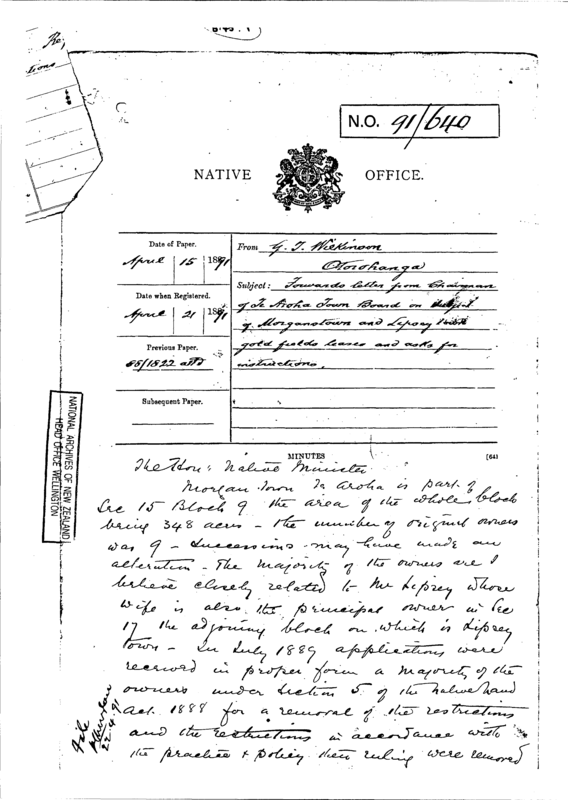 Re,
tions
N.O. 91/640
NATIVE OFFICE.
Date of Paper.
April 15 1891
Date when Registered.
April 21 1891
Previous Paper.
88/1822 attd
Subsequent Paper.
From G. T. Wilkinson
Otorohanga
Subject: Forwards letter from Chairman
of Te Aroha Town Board on subject
of Morganstown and Lipsey
gold fields leases and asks for
instructions.
NATIONAL ARCHIVES OF NEW ZEALAND
HEAD OFFICE WELLINGTON
MINUTES [64]
The Hon: Native Minister
Morgan Town Te Aroha is part of
Sec 15 Block 9 the area of the whole block
being 348 acres – the number of original owners
was 9 – successions may have made an
alteration – The majority of the owners are I
believe closely related to Mr Lipsey whose
wife is also the principal owner in Sec
17 the adjoining block on which is Lipsey
town – In July 1889 applications were
received in proper form a majority of the
owners under Section 5 of the Native Land
Act 1888 for a removal of the restrictions
and the restrictions in accordance with
the practice & policy then ruling were removed
File
22-4-91